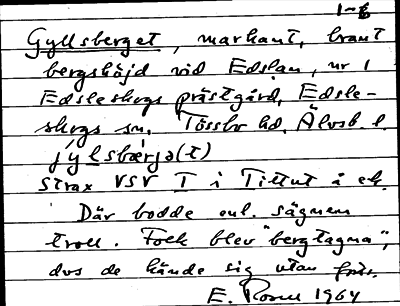 Gyllsberget, markant, brant
bergshöjd vid Edslan, nr 1
Edsleskogs prästgård, Edsle-
skogs sn. Tössbo hd. Älvsb. l.
jýl̲sbærjə(t)
Strax VSV I i Tittut å ek.
Där bodde enl. sägnen
troll. Folk blev "bergtagna",
dvs de kände sig utan
E. Rosen 1964